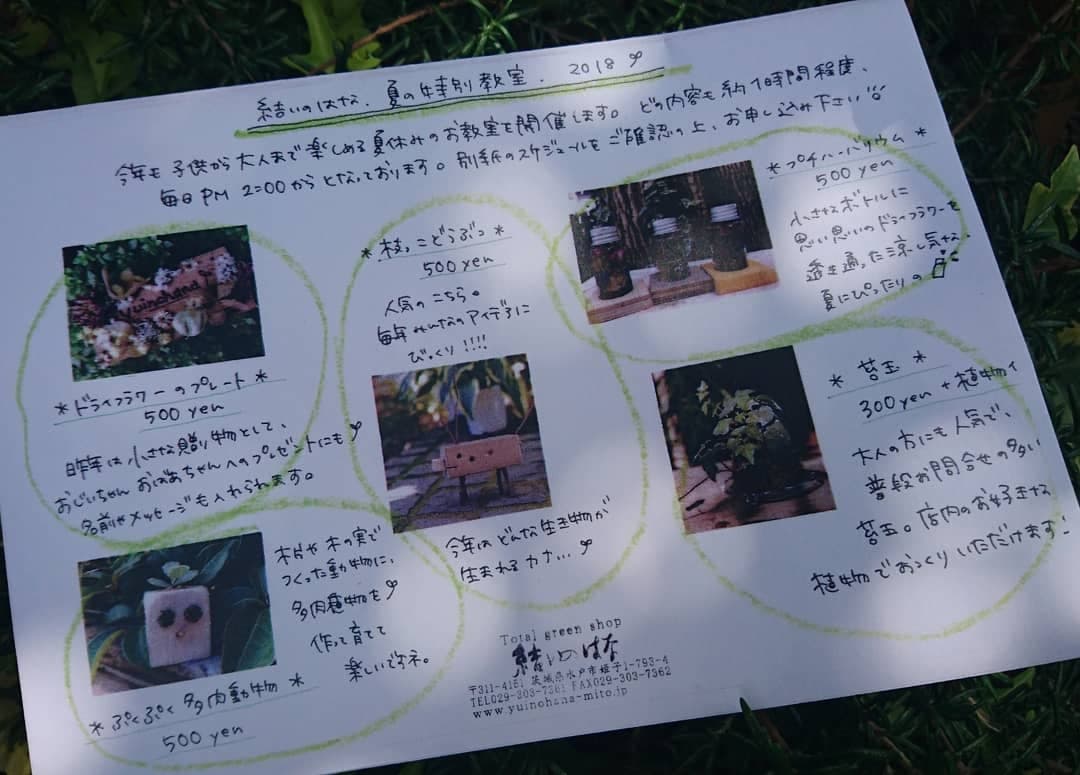 結いのはな. 夏の特別教室. 2018
今年も 子供から大人まで楽しめる夏休みのお教室を開催します。どの内容も約1時間程度、
毎日PM 2:00からとなっております。別紙のスケジュールをご確認の上、お申し込み下さい
＊ドライフラワーのプレート＊
500 yen
昨年は 小さな贈り物として、
おじいちゃん おばあちゃんへのプレゼントにも
名前やメッセージも入れられます。
yuinohana
＊枝っこどうぶつ＊
500 yen
人気の こちら。
毎年 みんなのアイデアに
びっくり!!!!
今年は どんな生き物が
生まれるカナ...
＊プチハーバリウム＊
500 yen
小さなボトルに
思い思いのドライフラワーを
透き通った涼し気な、
夏にぴったりの
＊苔玉＊
300yen + 植物代
大人の方にも人気で、
普段お問合せの多い
苔玉。店内のお好きな
植物でおつくりいただけます!
木片や木の実で
つくった動物に、
多肉植物を
作って育てて
楽しいですネ。
＊ぷくぷく多肉動物＊
500 yen
Total green shop
結いのはな
〒311-4151 茨城県水戸市姫子1-793-4
TEL029-303-7361 FAX029-303-7362
www.yuinohana-mito.jp